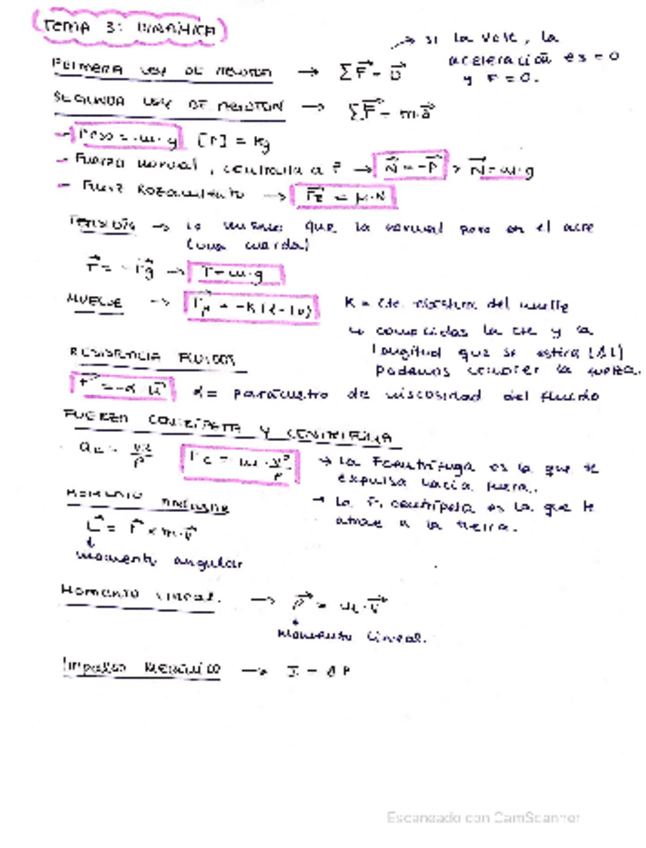 TEMA 3: DINÁMICA
→ si la vcte, la
aceleración es = 0
y F = 0.
PRIMERA LEY DE NEWTON → ΣF⃗ = 0⃗
SEGUNDA LEY DE NEWTON → ΣF⃗ = m·a⃗
- Peso = m·g [P] = kg
- Fuerza normal, contraria a P → N⃗ = -P⃗ > N⃗ = m·g
- Fuerz Rozamiento → Fr⃗ = μ·N
TENSIÓN → lo mismo que la normal pero en el aire
(una cuerda)
T⃗ = -Fg⃗ → T = m·g
MUELLE → F⃗ = -K(l-l0) K = cte del muelle
conocidas la cte y la
longitud que se estira (Δl)
podemos conocer la fuerza.
RESISTENCIA FLUIDOS
F⃗ = -α·v⃗ α = parámetro de viscosidad del fluido
FUERZA CENTRÍPETA Y CENTRÍFUGA
ac = v²/R Fc = m·v²/R → La Fcentrífuga es la que te
expulsa hacia fuera.
→ La F. centrípeta es la que te
atrae a la tierra.
MOMENTO ANGULAR
L⃗ = r⃗ × m·v⃗
momento angular
Momento lineal. → P⃗ = m·v⃗
momento lineal.
Impulso Mecánico → I = ΔP
Escaneado con CamScanner